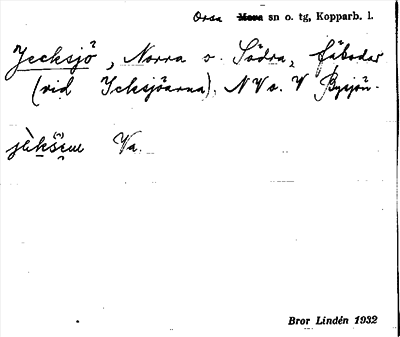 Orsa Mora sn o. tg, Kopparb. l.
Jecksjö, Norra o. Södra, fäbodar
(vid Icksjöarna), NV o. V Bysjön.
Va.
Bror Lindén 1932